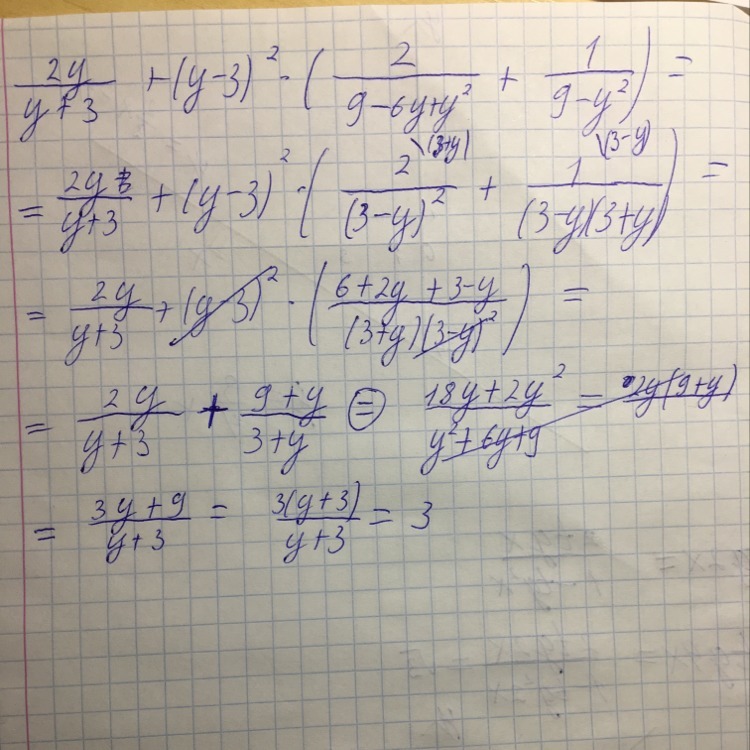 2y/(y+3) + (y-3)² · (2/(9-6y+y²) + 1/(9-y²)) =
= 2y/(y+3) + (y-3)² · (2\(3+y)/(3-y)² + 1\(3-y)/((3-y)(3+y))) =
= 2y/(y+3) + (y-3)² · ((6+2y+3-y)/((3+y)(3-y)²)) =
= 2y/(y+3) + (9+y)/(3+y) = (18y+2y²)/(y²+6y+9) = 2y(9+y)
= (3y+9)/(y+3) = 3(y+3)/(y+3) = 3